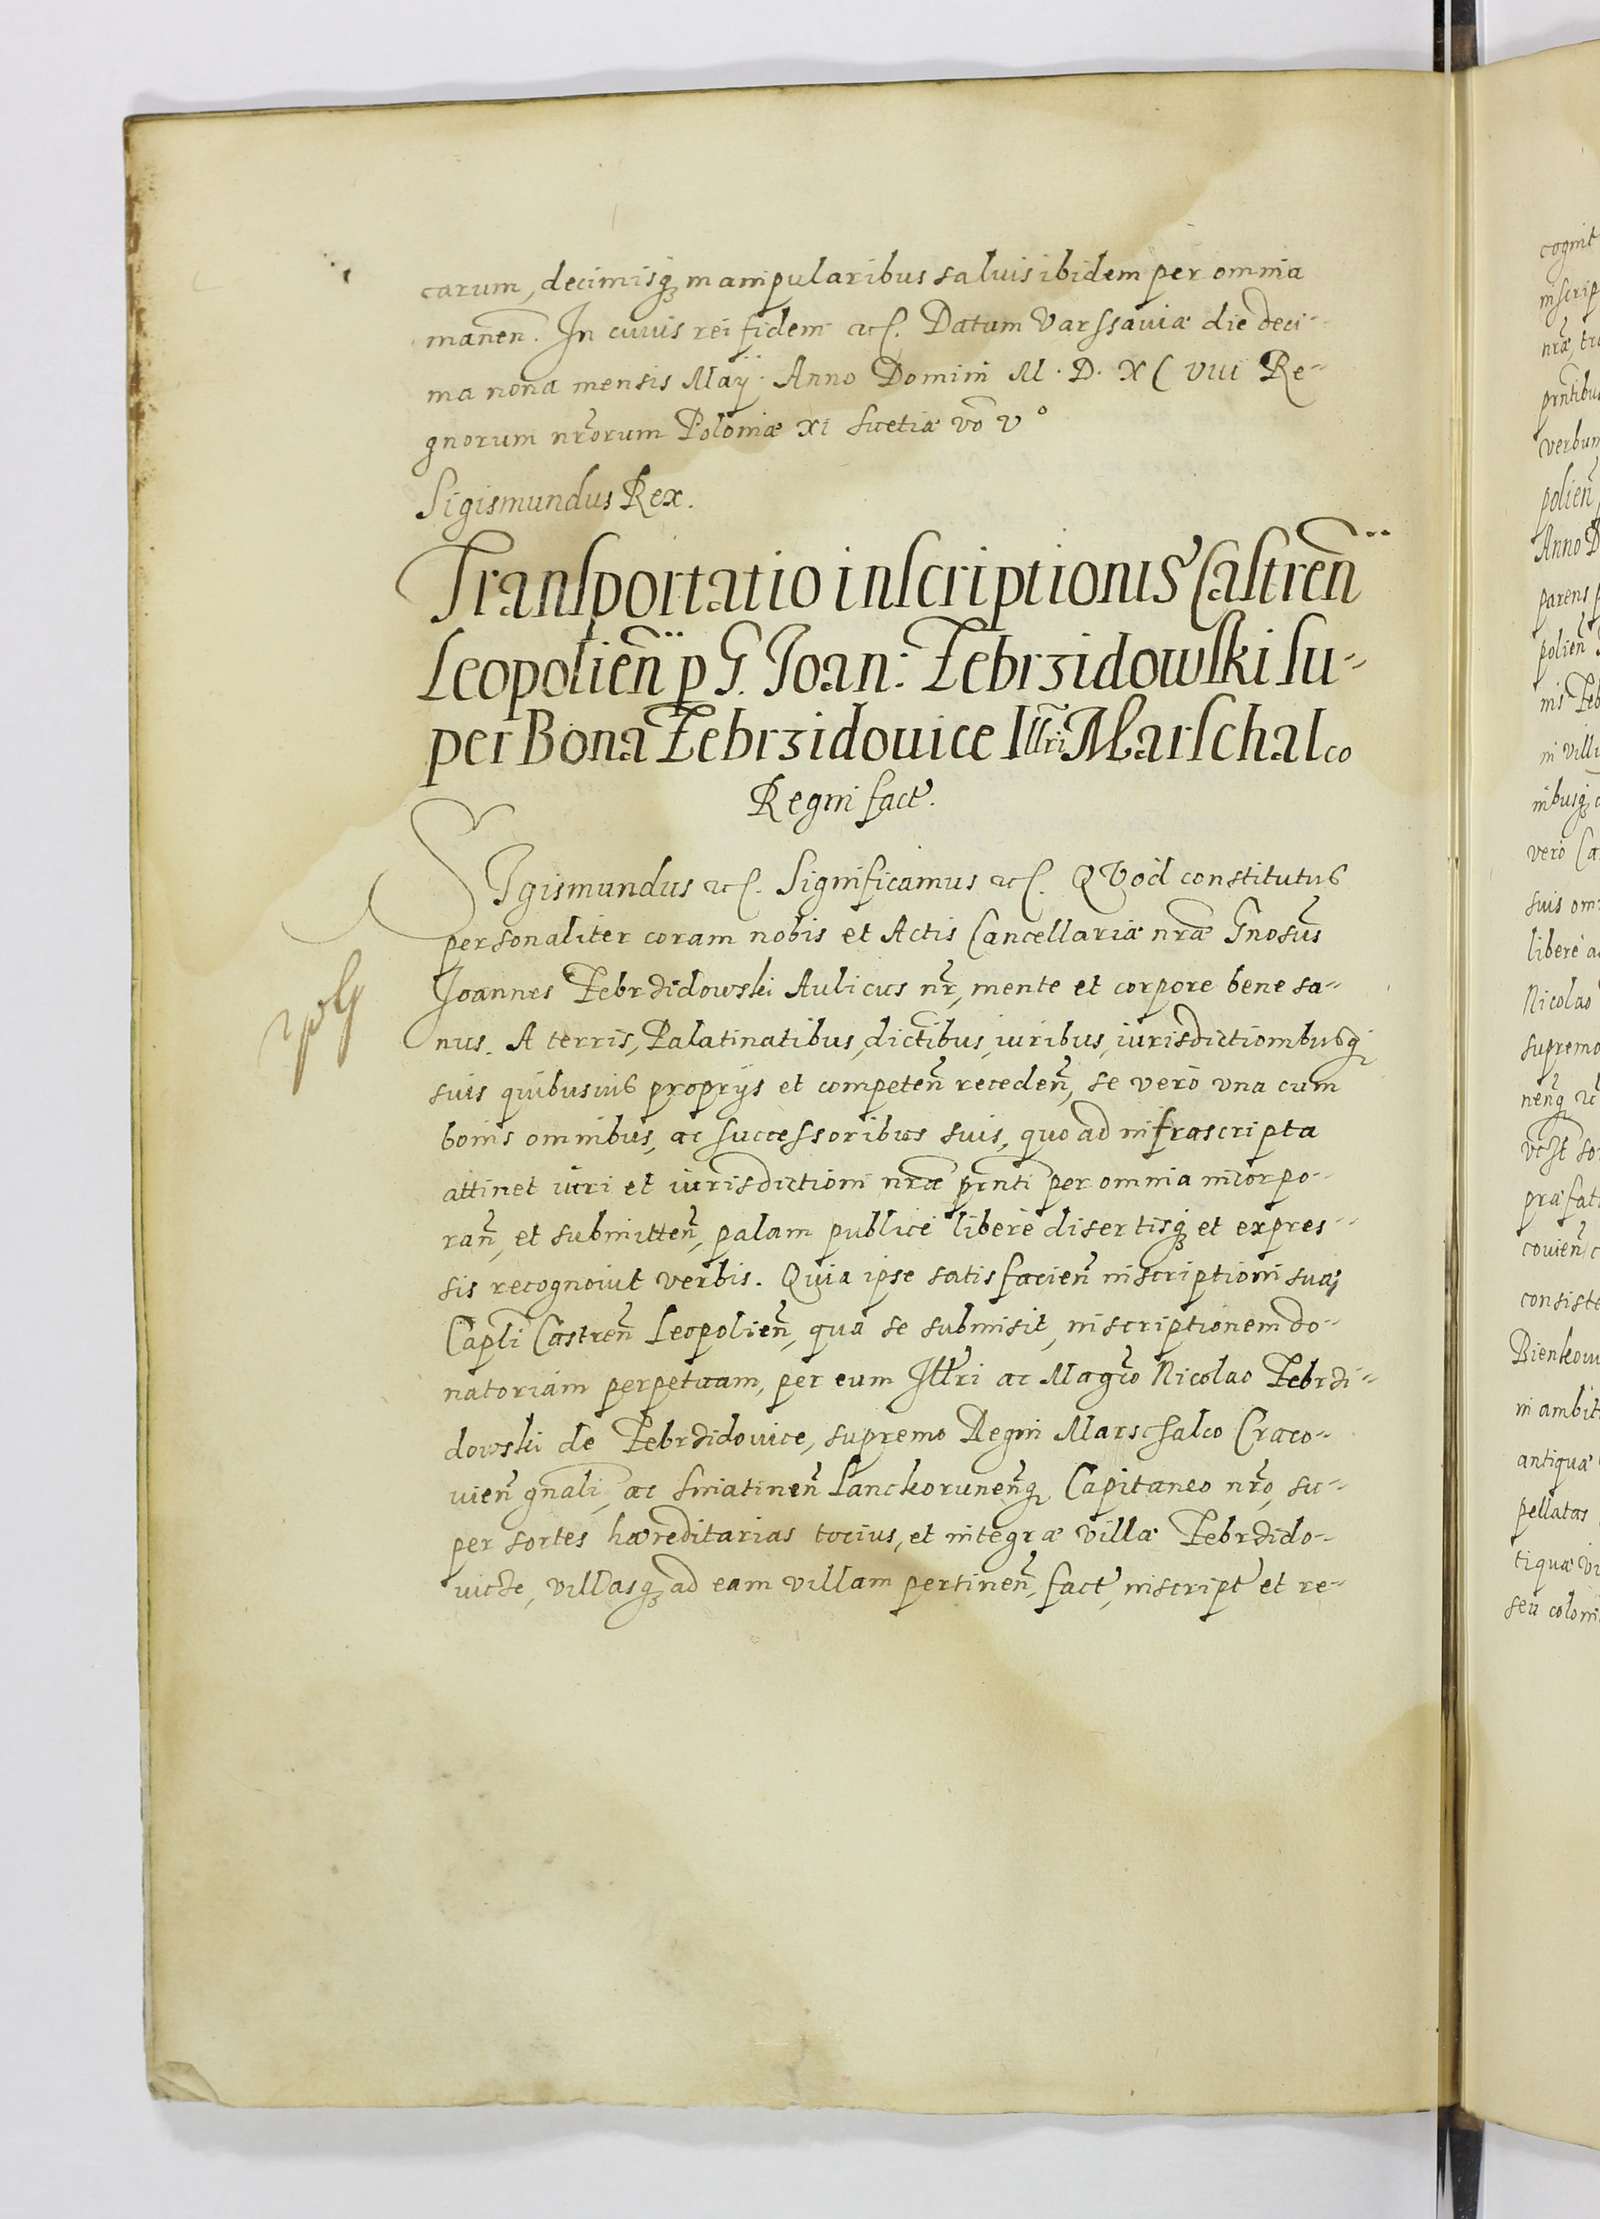 carum, decimisq₃ manipularibus saluis ibidem per omnia
manen̄. In cuius rei fidem etc. Datum Varssauiæ die deci-
ma nona mensis Maÿ. Anno Domini M. D. XC VIII Re-
gnorum nr̄orum Poloniæ XI Suetiæ vō V°
Sigismundus Rex.
Transportatio inscriptionis Castren̄
Leopolien̄ p G. Joan: Zebrzidowski su-
per Bona Zebrzidouice Illri Marschalco
Regni fact.
SIgismundus etc. Significamus etc. QVod constitutus
personaliter coram nobis et Actis Cancellariæ nr̄æ Gnosūs
Joannes Zebrzidowski Aulicus nr̄, mente et corpore bene sa-
nus. A terris, Palatinatibus, dictībus, iuribus, iurisdictionibusq₃
suis quibusuis proprijs et competen̄ receden̄, se verò vna cum
bonis omnibus, ac successoribus suis, quo ad infrascripta
attinet iuri et iurisdictioni nr̄æ prn̄ti per omnia incorpo-
ran̄, et submitten̄, palam publicè liberè disertisq₃ et expres-
sis recognouit verbis. Quia ipse satisfacien̄ inscriptioni suæ
Capli Castren̄ Leopolien̄, qua se submisit, inscriptionem do-
natoriam perpetuam, per eum Illri ac Magco Nicolao Zebrzi-
dowski de Zebrzidouice, supremo Regni Marschalco Craco-
uien̄ gn̄ali, ac Sniatinen̄ Lanckorunen̄q₃ Capitaneo nr̄o, su-
per sortes hæreditarias tocius, et integræ villæ Zebrzido-
uicze, villasq₃ ad eam villam pertinen̄, fact, inscript et re-
cognit
inscrip
nr̄æ, tr
prn̄tibus
verbum
polien̄
Anno D
parens p
polien̄
nis Zeb
in villi
nibusq₃
verò Ca
suis om
liberè a
Nicolao
supremo
nen̄q₃
præfat
couien̄ c
consiste
Bienkow
in ambit
antiquæ
pellatas
tiquæ vi
seu coloni